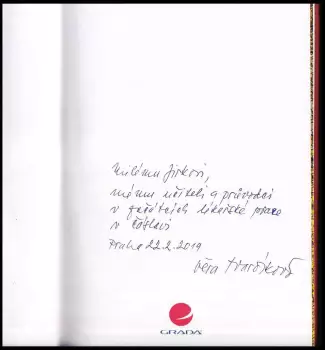 Milému Jirkovi,
mému učiteli a průvodci
v začátcích lékařské praxe
v
Praha 22.2.2019
Věra
GRADA